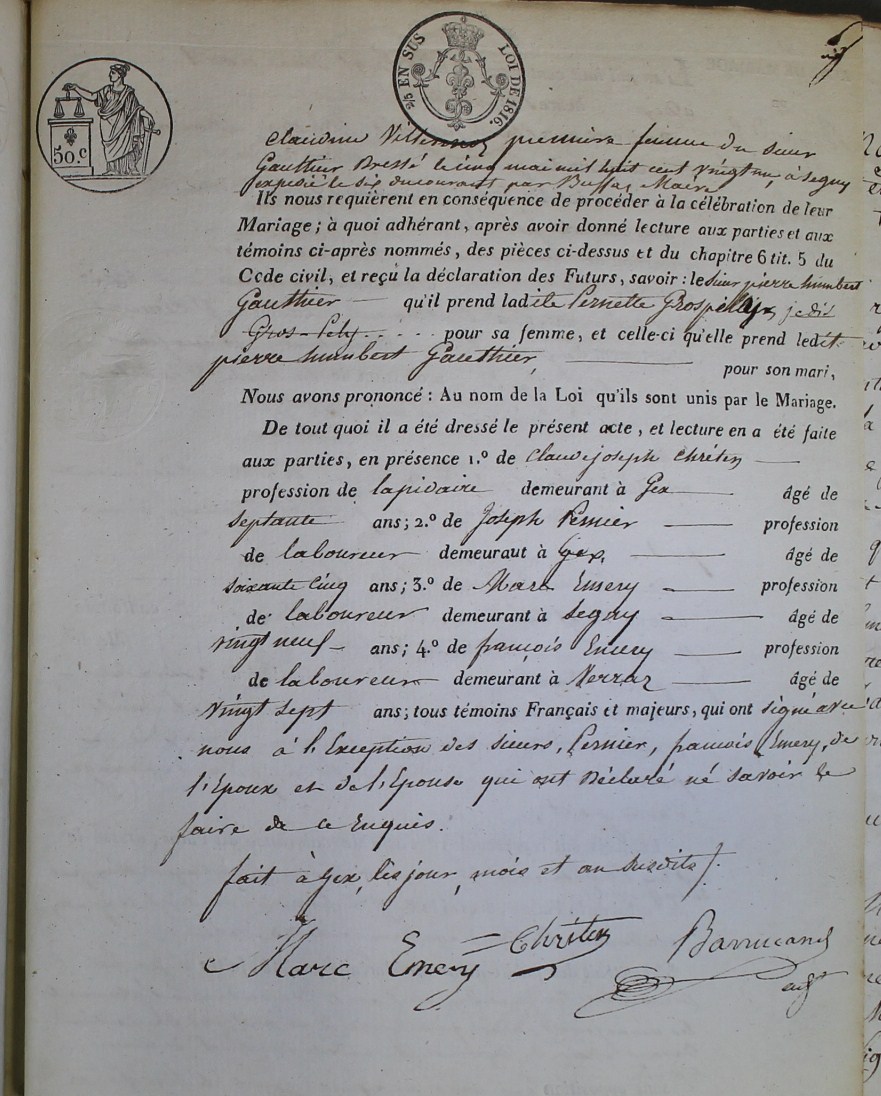 2/5 EN SUS LOI DE 1816.
50.C
Claudine première femme du sieur
Gauthier Bressé le cinq mai mil huit cent vingt un, à Segny
expédié le six du courant par Maire
Ils nous requièrent en conséquence de procéder à la célébration de leur
Mariage ; à quoi adhérant, après avoir donné lecture aux parties et aux
témoins ci-après nommés, des pièces ci-dessus et du chapitre 6 tit. 5 du
Code civil, et reçu la déclaration des Futurs, savoir : le Sieur pierre humbert
Gauthier qu'il prend ladite Pernette je dis
Gros-Pely pour sa femme, et celle-ci qu'elle prend ledit
pierre humbert Gauthier, pour son mari,
Nous avons prononcé : Au nom de la Loi qu'ils sont unis par le Mariage.
De tout quoi il a été dressé le présent acte, et lecture en a été faite
aux parties, en présence 1.º de Claude joseph Chrétien
profession de lapidaire demeurant à Gex âgé de
septante ans ; 2.º de Joseph Pernier profession
de laboureur demeuraut à Gex, âgé de
soixante cinq ans ; 3.º de Marc Emery profession
de laboureur demeurant à Segny âgé de
vingt neuf ans ; 4.º de françois Emery profession
de laboureur demeurant à Verraz âgé de
vingt sept ans ; tous témoins Français et majeurs, qui ont signé avec
nous à l'Exception des sieurs, Pernier, francois Emery, de
l'Epoux et de l'Epouse qui ont Déclaré né savoir le
faire de ce Enquis.
fait à Gex, les jour, mois et an susdits
Marc Emery Chrétien Barrucand